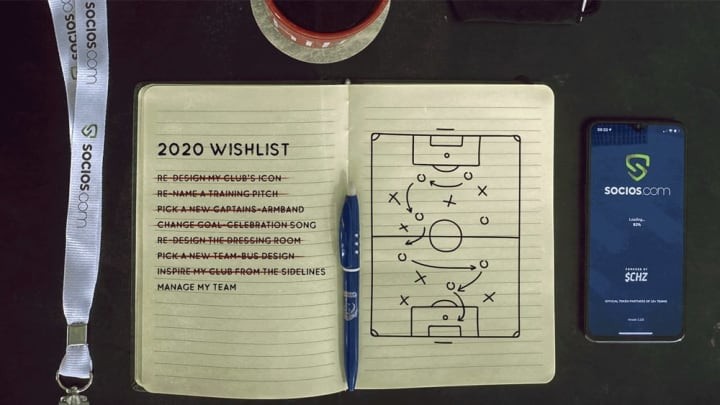 SOCIOS.COM
SOCIOS.COM
2020 WISHLIST
RE-DESIGN MY CLUB'S ICON
RE-NAME A TRAINING PITCH
PICK A NEW CAPTAINS-ARMBAND
CHANGE GOAL-CELEBRATION SONG
RE-DESIGN THE DRESSING ROOM
PICK A NEW TEAM-BUS DESIGN
INSPIRE MY CLUB FROM THE SIDELINES
MANAGE MY TEAM
SOCIOS.COM
Loading...
POWERED BY
$CHZ